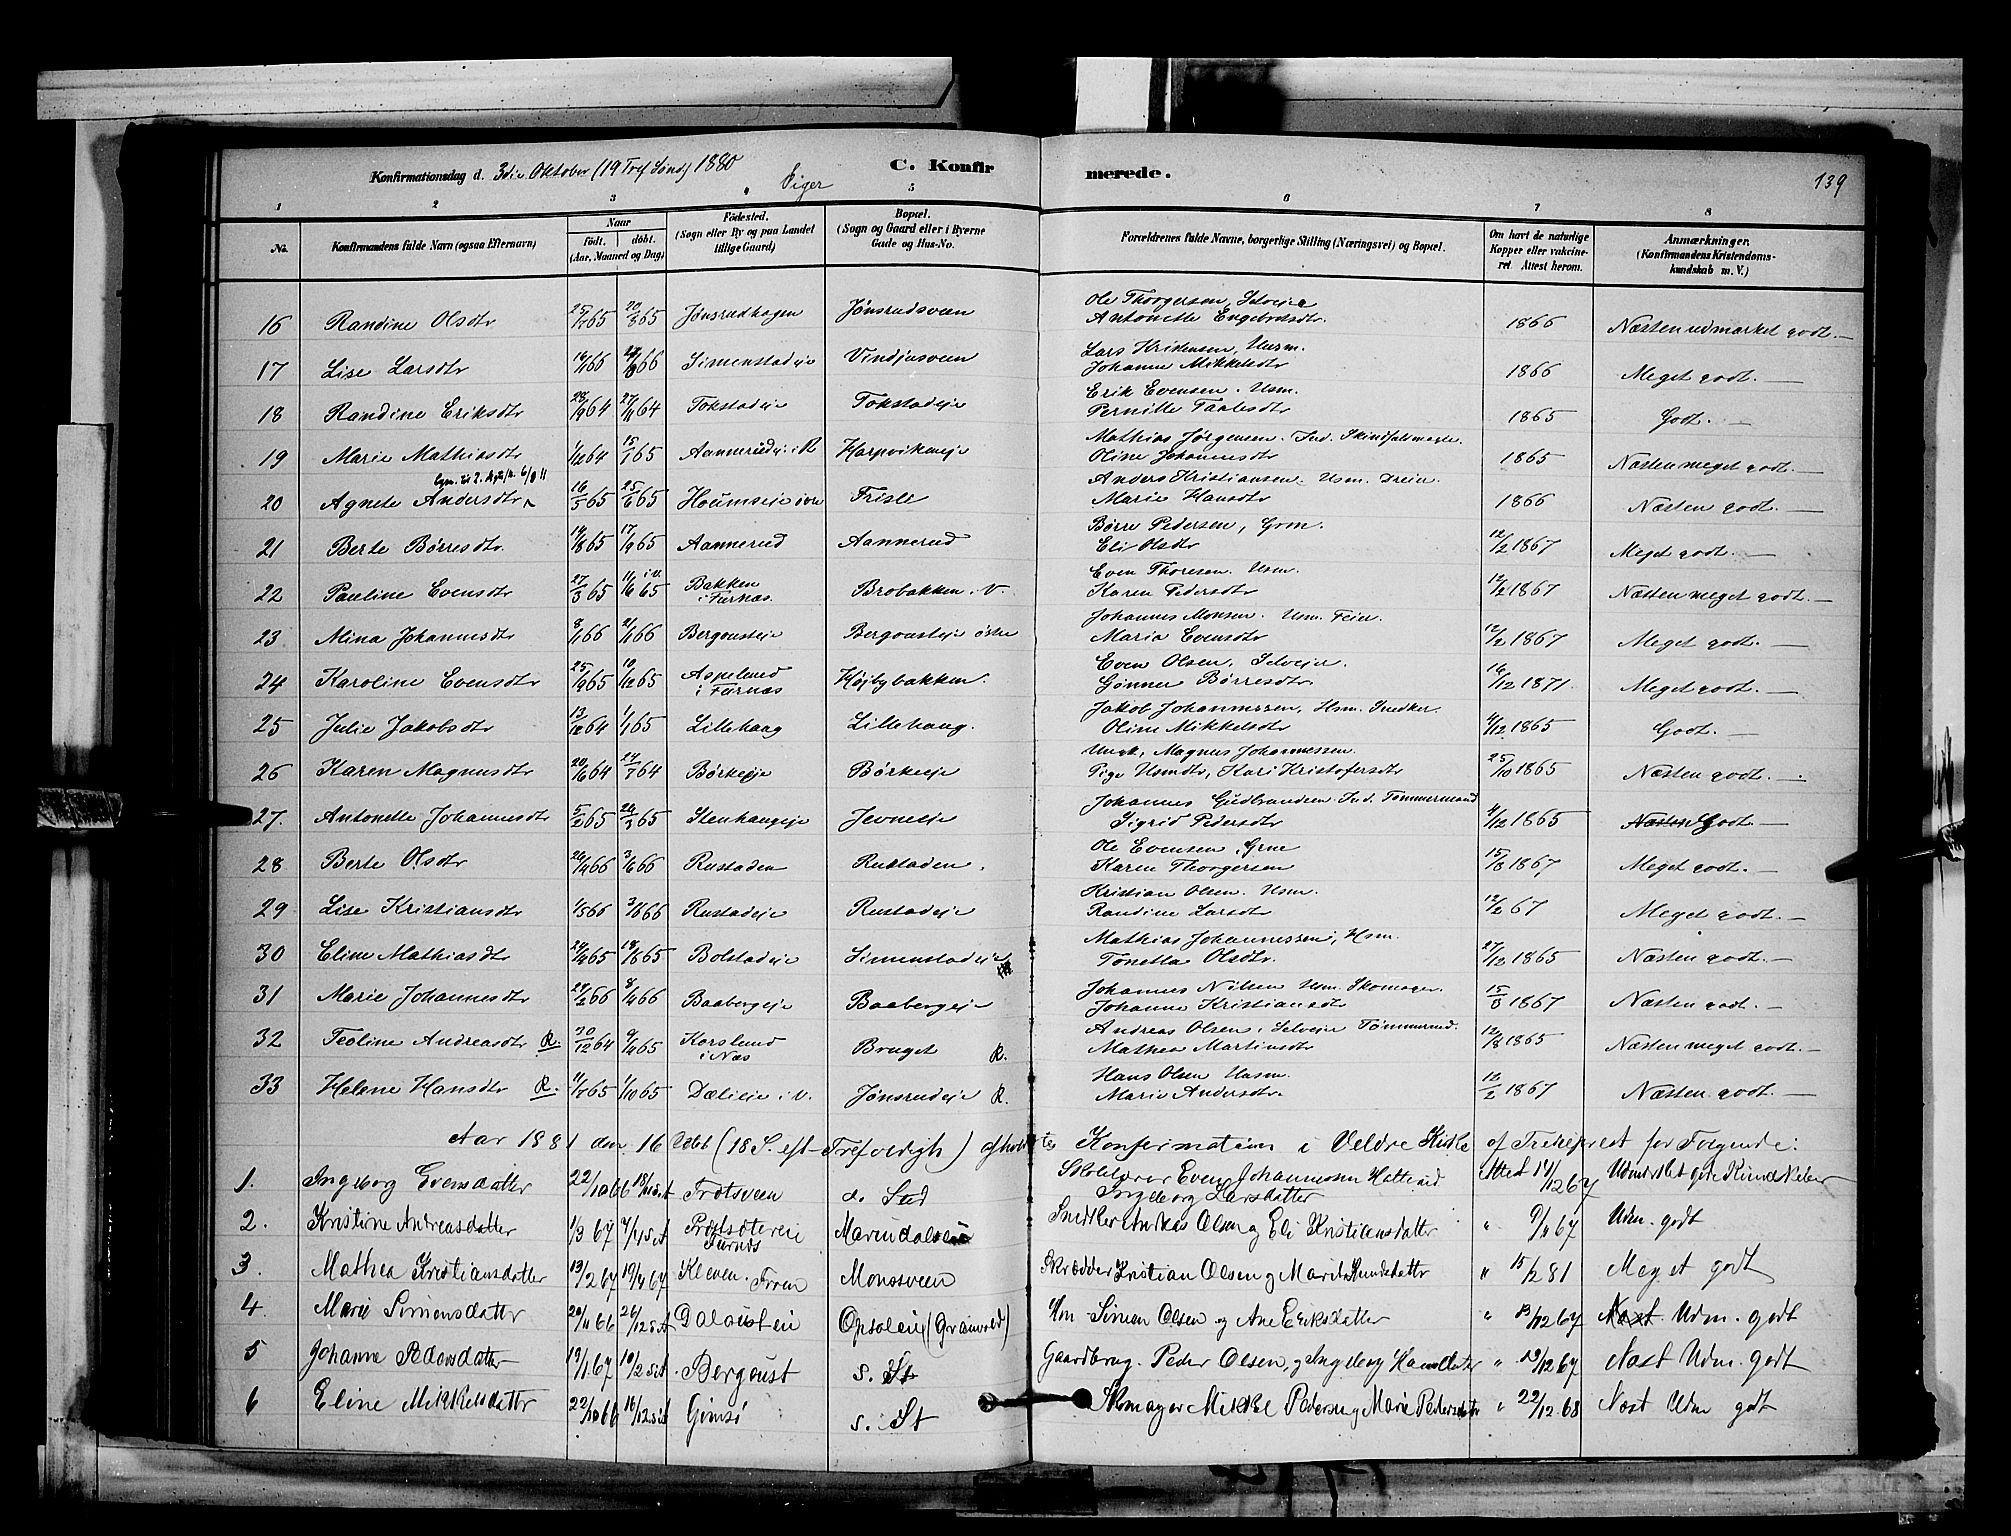 139
Konfirmationsdag d. 3die Oktober (19 Tref. Sønd) 1880 Piger C. Konfirmerede.
1 2 3 4 5 6 7 8
No. Konfirmandens fulde Navn (ogsaa Efternavn) Naar født. døbt. (Aar, Maaned og Dag) Fødested. (Sogn eller By og paa Landet tillige Gaard) Bopæl. (Sogn og Gaard eller i Byerne Gade og Hus-No. Forældrenes fulde Navne, borgerlige Stilling (Næringsvei) og Bopæl. Om havt de naturlige Kopper eller vakcineret. Attest herom. Anmærkninger. (Konfirmandens Kristendomskundskab m. V.)
16 Randine Olsdtr 65 20/8 65 Jønsrudhagen Jønsrudsveen Ole Thorgersen, Selveier Antonette Engebretsdtr. 1866 Næsten udmærket godt.
17 Lise Larsdtr 66 66 Simenstadeje Vindjusveen Lars Kristensen, Husm. Johanne Mikkelsdtr 1866 Meget godt.
18 Randine Eriksdtr 28/9 64 27/11 64 Tokstadeje Tokstadeje Erik Evensen. Husm. Pernille Paalsdtr 1865 Godt.
19 Marie Mathiasdtr 1/12 64 15/1 65 Aannerudeje i R Harpvikeneje Mathias Jørgensen. Ind. Oline Johannesdtr 1865 Næsten meget godt.
20 Agnete Andersdtr 16/5 65 25/6 65 Houmseje øvre Frisle Anders Kristiansen. Husm. Dreier. Marie Hansdtr 1866 Næsten godt.
21 Berte Børresdtr 14/8 65 17/9 65 Aannerud Aannerud Børre Pedersen, Grm. Eli Olsdtr 12/2 1867 Meget godt.
22 Pauline Evensdtr 27/3 65 11/6 65 i V. Bakken i Furnæs Brobakken i V. Even Thoresen. Husm. Karen Pedersdtr 12/2 1867 Næsten meget godt.
23 Mina Johannesdtr 8/1 66 21/1 66 Bergousteje Bergousteje østre Johannes Monsen. Husm. Feier. Maria Evensdtr 12/2 1867 Meget godt.
24 Karoline Evensdtr 25/9 65 10/12 65 Aspelund i Furnæs Højbybakken. Even Olsen, Selveier. Gønner Børresdtr. 16/12 1871. Meget godt.
25 Julie Jakobsdtr 13/12 64 1/1 65 Lillehaug Lillehaug. Jakob Johannessen, Husm. Snedker. Oline Mikkelsdtr 4/12 1865 Godt.
26 Karen Magnusdtr 20/6 64 24/7 64 Børkeeje Børkeeje Ungk. Magnus Johannessen. Pige Husmdtr, Kari Kristofersdtr 25/10 1865 Næsten godt.
27. Antonette Johannesdtr 5/2 65 26/3 65 Stenhaugeje Jevneeje Johannes Gudbrandsen. Ind. Tømmermand Sigrid Pedersdtr 4/12 1865 Næsten Godt.
28 Berte Olsdtr 26/4 66 3/6 66 Rustaden Rustaden. Ole Evensen, Grm Karen Thorgersen 15/8 1867 Meget godt.
29 Lise Kristiansdtr 1/5 66 3/6 66 Rustadeje Rustadeje Kristian Olsen. Husm. Randine Larsdtr 12/2 67 Meget godt.
30 Eline Mathiasdtr 65 18/6 65 Bolstadeje Simenstadeje Mathias Johannessen, Husm. Tonetta Olsdtr. 27/12 1865 Næsten godt.
31 Marie Johannesdtr 24/2 66 8/4 66 Baabergeje Baabergeje Johannes Nilsen Husm. Skomager. Johanne Kristiansdtr 15/8 1867 Næsten godt.
32 Teoline Andreasdtr R. 30/12 64 9/4 65 Korslund i Næs Bruget R. Andreas Olsen, Selveier Tømmermd. Mathea Martinsdtr 12/8 1865 Næsten meget godt.
33 Helene Hansdtr R. 65 1/10 65 Dælieje i V. Jønsrudeje R. Hans Olsen Husm. Marie Andersdtr. 12/2 1867 Næsten godt.
Aar 1881 den 16 Octob (18 S. eft. Trefoldigh) afholdtes Konfirmation i Veldre Kirke af Sognepræst for Følgende:
1. Ingeborg Evensdatter 22/10 66 Frøtsveen d. Sted Skolelærer Even Johannessen Ingeborg Larsdatter Attest 14/12 67 Udmærket gode Kundskaber
2. Kristine Andreasdatter 1/3 67 Furnæs Snedker Andreas Olsen og Eli Kristiansdatter " 9/4 67 Udm. godt
3. Mathea Kristiansdatter 13/2 67 19/4 67 Kleven. Fron Monssveen Skrædder Kristian Olsen og Marit Knudsdatter " 15/2 81 Meget godt
4. Marie Simensdatter 20/11 66 26/12 s.A Dalousteie Opsaleie (Grønvold) Hm Simen Olsen og Ane Eriksdatter " 13/12 67 Næst Udm. godt
5 Johanne Pedersdatter 19/1 67 10/2 s.A Bergoust s. St Gaardbrug. Peder Olsen, og Ingeborg Hansdatter " 19/12 67 Næst Udm. godt
6 Eline Mikkelsdatter 22/10 66 16/12 s.A Gimsø s. St Skomager Mikkel Pedersen og Marie Pedersdtr " 22/12 68 Næst Udm godt